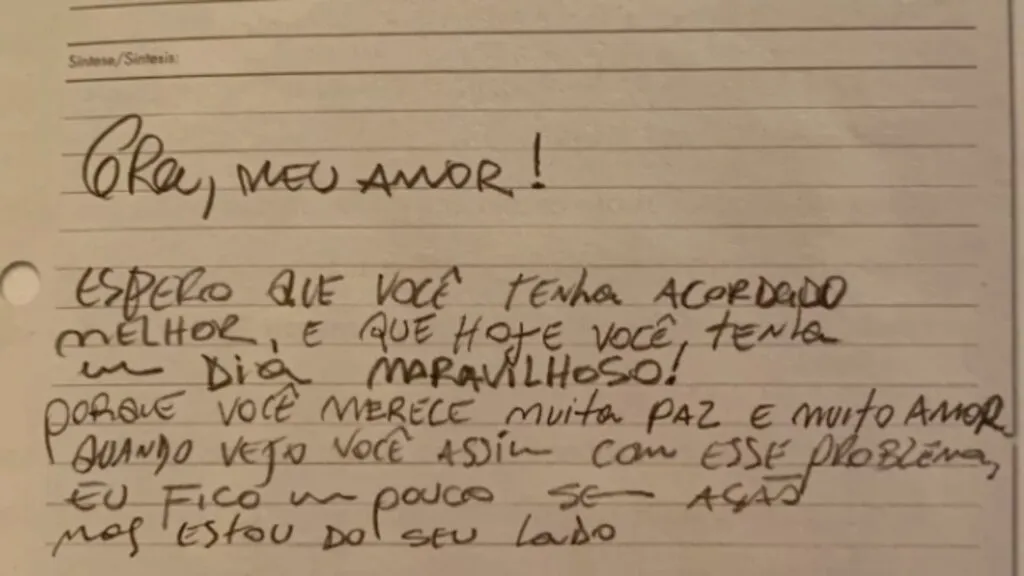 Síntese/Síntesis:
GRa, MEU AMOR!
ESPERO QUE VOCÊ TENha ACORDADO
MELHOR, E QUE HOJE VOCÊ, TENha
um DIA MARAVILHOSO!
PORQUE VOCÊ MERECE muita PAZ E muito AMOR
QUANDO VEJO VOCÊ ASSIM COM ESSE PROBLEMA,
EU FICO um pouco SEM AÇÃO
MAS ESTOU DO SEU LADO